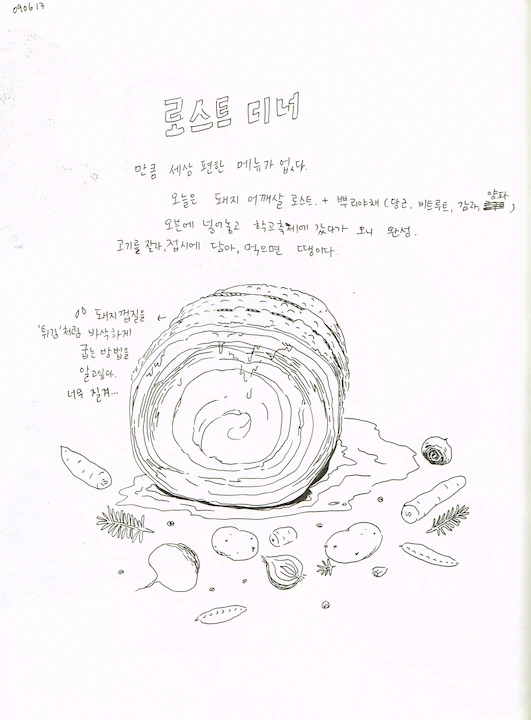 090617
로스트 디너
만큼 세상 편한 메뉴가 없다.
오늘은 돼지 어깨살 로스트. + 뿌리야채 (당근, 비트루트, 감자, 양파)
오븐에 넣어놓고 학교축제에 갔다가 오니 완성.
고기를 잘라, 접시에 담아, 먹으면 땡이다.
돼지껍질을
'튀김'처럼 바삭하게
굽는 방법을
알고싶다.
너무 질겨...